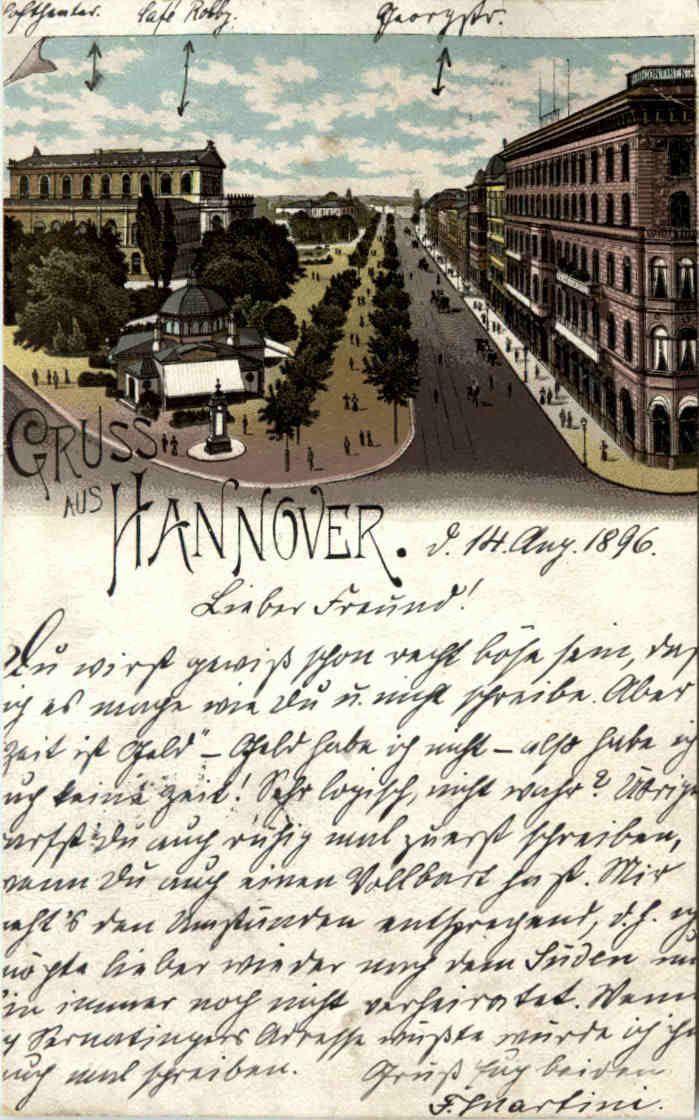 Hoftheater. Café Robby. Georgstr.
CONTINENTAL
GRUSS
AUS
HANNOVER. d. 14. Aug. 1896.
Lieber Freund!
Du wirst gewiß schon recht böse sein, daß
ich es mache wie Du u. nicht schreibe. Aber
Zeit ist Geld" – Geld habe ich nicht – also habe ich
uch keine Zeit! Sehr logisch, nicht wahr? Übrige
arfst Du auch ruhig mal zuerst schreiben,
wenn Du auch einen Vollbart hast. Mir
eht's den Umständen entsprechend, d. h. ich
möchte lieber wieder nach dem Süden un
in immer noch nicht verheiratet. Wenn
Sernatingers Adresse wüßte würde ich ih
auch mal schreiben. Gruß Euch beiden
F. Martini.